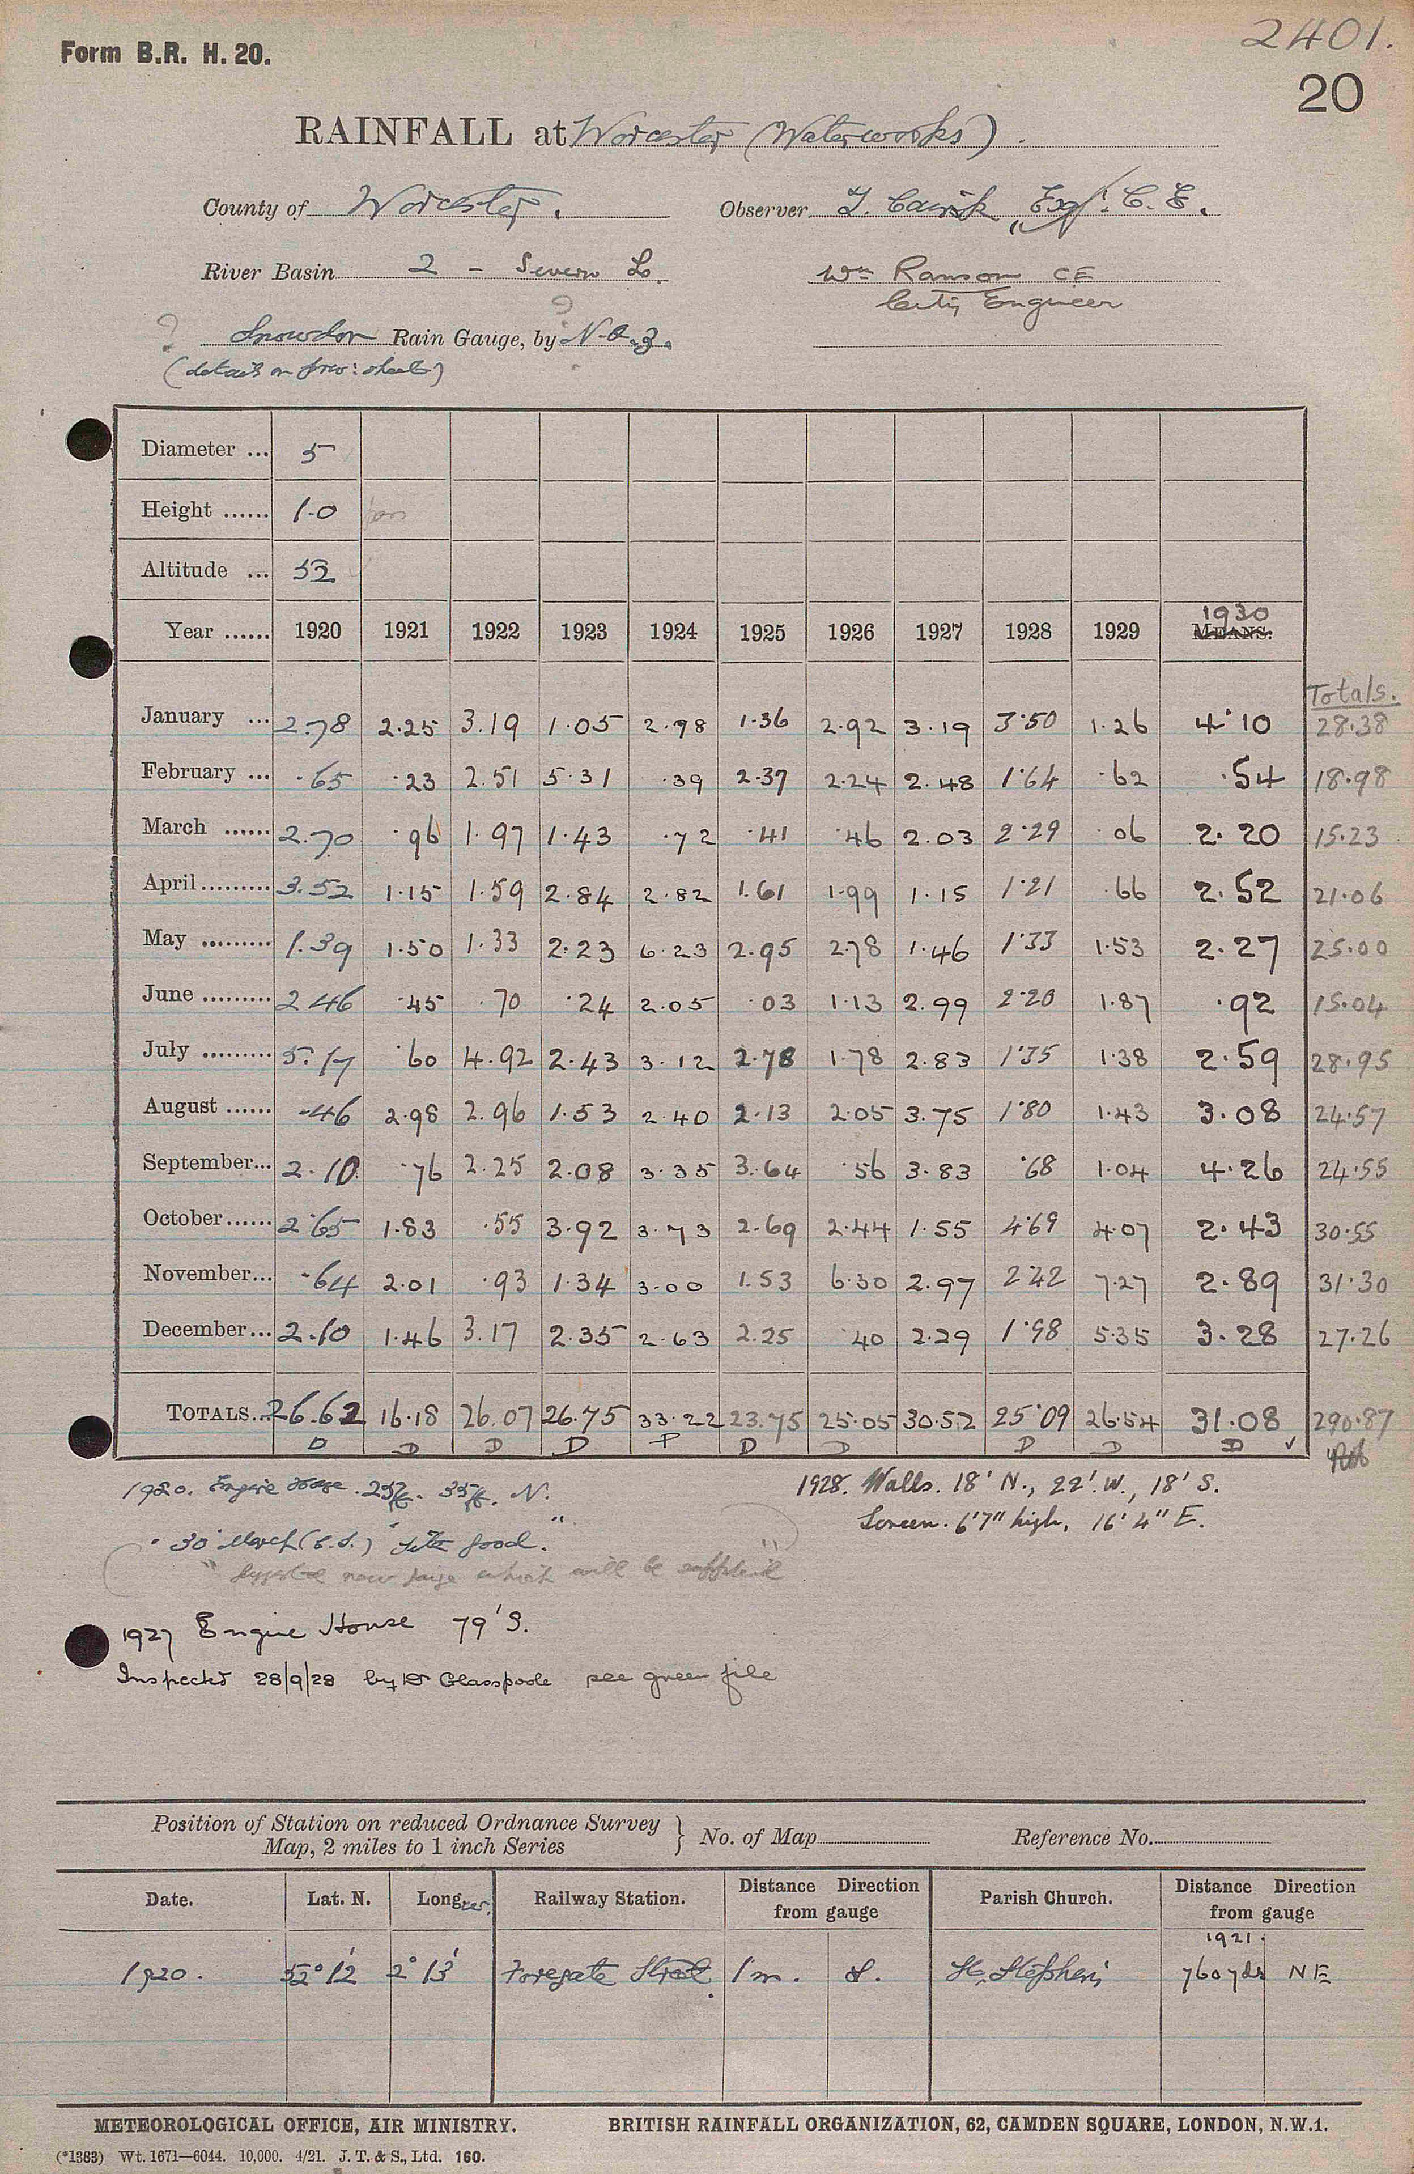 2401.
Form B.R. H. 20.
20
RAINFALL at Worcester (Waterworks).
County of Worcester. Observer T. Caink, Esq. C. E.
River Basin 2 - Severn L. Wm Ransom CE
City Engineer
? Snowdon Rain Gauge, by N & Z. ?
(details on prev: sheet)
Diameter ... 5
Height ...... 1.0
Altitude ... 52
Year ...... 1920 1921 1922 1923 1924 1925 1926 1927 1928 1929 MEANS. 1930
Totals.
January ... 2.78 2.25 3.19 1.05 2.98 1.36 2.92 3.19 3.50 1.26 4.10 28.38
February ... .65 .23 2.51 5.31 .39 2.37 2.24 2.48 1.64 .62 .54 18.98
March ...... 2.70 .96 1.97 1.43 .72 .41 .46 2.03 2.29 .06 2.20 15.23
April ......... 3.52 1.15 1.59 2.84 2.82 1.61 1.99 1.15 1.21 .66 2.52 21.06
May ......... 1.39 1.50 1.33 2.23 6.23 2.95 2.78 1.46 1.33 1.53 2.27 25.00
June ......... 2.46 .45 .70 .24 2.05 .03 1.13 2.99 2.20 1.87 .92 15.04
July ......... 5.17 .60 4.92 2.43 3.12 2.78 1.78 2.83 1.35 1.38 2.59 28.95
August ...... .46 2.98 2.96 1.53 2.40 2.13 2.05 3.75 1.80 1.43 3.08 24.57
September... 2.10 .76 2.25 2.08 3.35 3.64 .56 3.83 .68 1.04 4.26 24.55
October ...... 2.65 1.83 .55 3.92 3.73 2.69 2.44 1.55 4.69 4.07 2.43 30.55
November... .64 2.01 .93 1.34 3.00 1.53 6.30 2.97 2.42 7.27 2.89 31.30
December... 2.10 1.46 3.17 2.35 2.63 2.25 .40 2.29 1.98 5.35 3.28 27.26
TOTALS... 26.62 16.18 26.07 26.75 33.22 23.75 25.05 30.52 25.09 26.54 31.08 290.87
D D D D P D D D D D ✓
1920. Engine House. 25ft. 35ft. N. 1928. Walls. 18' N., 22' W., 18' S.
Screen. 6'7" high, 16' 4" E.
" 30 March (C.S.) "Site good."
"Suggested new gauge which will be supplied"
1927 Engine House 79' S.
Inspected 28/9/28 by Dr Glasspoole see green file
Position of Station on reduced Ordnance Survey
Map, 2 miles to 1 inch Series } No. of Map Reference No.
Date. Lat. N. Long. W. Railway Station. Distance Direction from gauge Parish Church. Distance Direction from gauge
1921.
1920. 52° 12' 2° 13' Foregate Street. 1 m. S. St. Stephen's 760 yds NE
METEOROLOGICAL OFFICE, AIR MINISTRY. BRITISH RAINFALL ORGANIZATION, 62, CAMDEN SQUARE, LONDON, N.W.1.
(*1383) Wt. 1671—6044. 10,000. 4/21. J. T. & S., Ltd. 160.